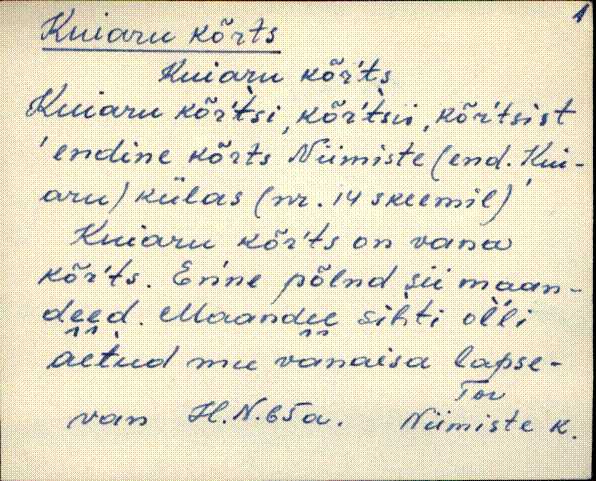 1
Kuiaru kõrts
Kuiaru kõŕts
Kuiaru kõŕtsi, kõŕtsii, kõŕtsist
'endine kõrts Niimiste (end. Kui-
aru) külas (nr. 14 skeemil)'
Kuiaru kõŕts on vana
kõŕts. Enne põlnd sii maan-
deed. Maandee sihti olli
aetud mu vanaisa lapse-
van H.N. 65 a.
Tor
Niimiste k.